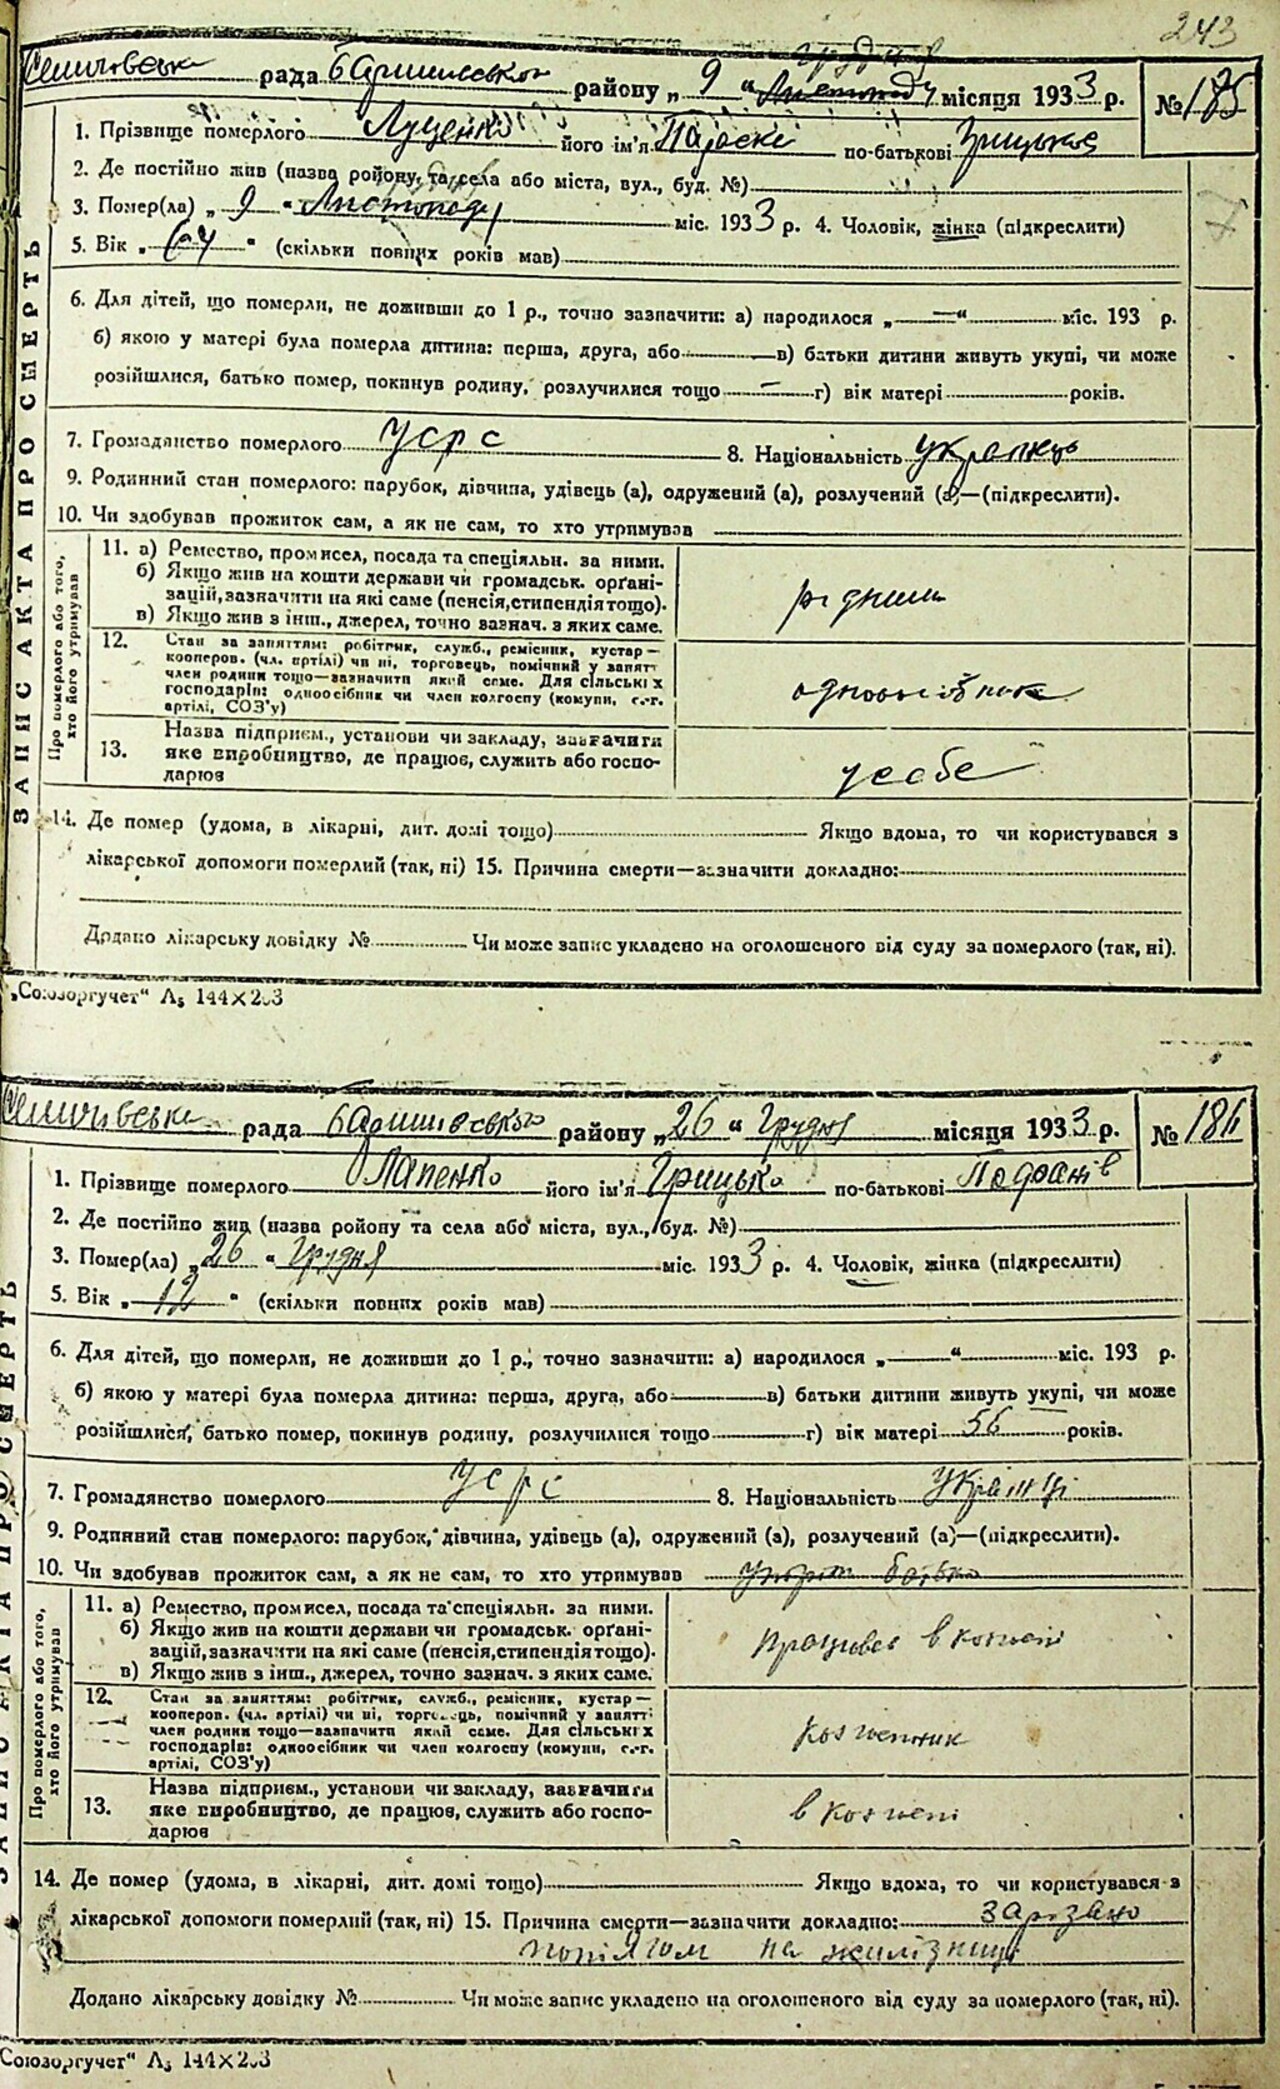 243
грудня
Семилівська рада Баришівського району „ 9 “ Листопаду місяця 1933 р. № 185
1. Прізвище померлого Луценко його ім'я Параска по-батькові Грицькова
2. Де постійно жив (назва ройону, та села або міста, вул., буд. №)
3. Помер(ла) „ 9 “ Листопаду міс. 1933 р. 4. Чоловік, жінка (підкреслити)
5. Вік „ 64 “ (скільки повних років мав)
6. Для дітей, що померли, не доживши до 1 р., точно зазначити: а) народилося „ — “ міс. 193 р.
б) якою у матері була померла дитина: перша, друга, або — в) батьки дитини живуть укупі, чи може
розійшлися, батько помер, покинув родину, розлучилися тощо — г) вік матері років.
7. Громадянство померлого УСРС 8. Національність українець
9. Родинний стан померлого: парубок, дівчина, удівець (а), одружений (а), розлучений (а)—(підкреслити).
10. Чи здобував прожиток сам, а як не сам, то хто утримував
ЗАПИС АКТА ПРО СМЕРТЬ
Про померлого або того, хто його утримував
11. а) Ремество, промисел, посада та спеціяльн. за ними.
б) Якщо жив на кошти держави чи громадськ. орґані-
зацій, зазначити на які саме (пенсія, стипендія тощо).
в) Якщо жив з інш., джерел, точно зазнач. з яких саме.
12. Стан за заняттям: робітник, служб., ремісник, кустар—
кооперов. (чл. артілі) чи ні, торговець, помічний у занятт
член родини тощо—зазначити який саме. Для сільських
господарів: одноосібник чи член колгоспу (комуни, с.-г.
артілі, СОЗ'у)
одноосібник
13. Назва підприєм., установи чи закладу, зазначити
яке виробництво, де працює, служить або госпо-
дарює
у себе
14. Де помер (удома, в лікарні, дит. домі тощо) Якщо вдома, то чи користувався з
лікарської допомоги померлий (так, ні) 15. Причина смерти—зазначити докладно:
Додано лікарську довідку № Чи може запис укладено на оголошеного від суду за померлого (так, ні).
„Союзоргучет“ А5 144×203
Семилівська рада Баришівського району „ 26 “ Грудня місяця 1933 р. № 186
1. Прізвище померлого Лапенко його ім'я Грицько по-батькові
2. Де постійно жив (назва ройону та села або міста, вул., буд. №)
3. Помер(ла) „ 26 “ Грудня міс. 1933 р. 4. Чоловік, жінка (підкреслити)
5. Вік „ 12 “ (скільки повних років мав)
6. Для дітей, що померли, не доживши до 1 р., точно зазначити: а) народилося „ — “ міс. 193 р.
б) якою у матері була померла дитина: перша, друга, або — в) батьки дитини живуть укупі, чи може
розійшлися, батько помер, покинув родину, розлучилися тощо — г) вік матері 56 років.
7. Громадянство померлого УСРС 8. Національність Українці
9. Родинний стан померлого: парубок, дівчина, удівець (а), одружений (а), розлучений (а)—(підкреслити).
10. Чи здобував прожиток сам, а як не сам, то хто утримував батько
ЗАПИС АКТА ПРО СМЕРТЬ
Про померлого або того, хто його утримував
11. а) Ремество, промисел, посада та спеціяльн. за ними.
б) Якщо жив на кошти держави чи громадськ. орґані-
зацій, зазначити на які саме (пенсія, стипендія тощо).
в) Якщо жив з інш., джерел, точно зазнач. з яких саме.
12. Стан за заняттям: робітник, служб., ремісник, кустар—
кооперов. (чл. артілі) чи ні, торговець, помічний у занятт
член родини тощо—зазначити який саме. Для сільських
господарів: одноосібник чи член колгоспу (комуни, с.-г.
артілі, СОЗ'у)
13. Назва підприєм., установи чи закладу, зазначити
яке виробництво, де працює, служить або госпо-
дарює
14. Де помер (удома, в лікарні, дит. домі тощо) Якщо вдома, то чи користувався з
лікарської допомоги померлий (так, ні) 15. Причина смерти—зазначити докладно: зарізано
потягом на желізниці
Додано лікарську довідку № Чи може запис укладено на оголошеного від суду за померлого (так, ні).
Союзоргучет“ А5 144×203